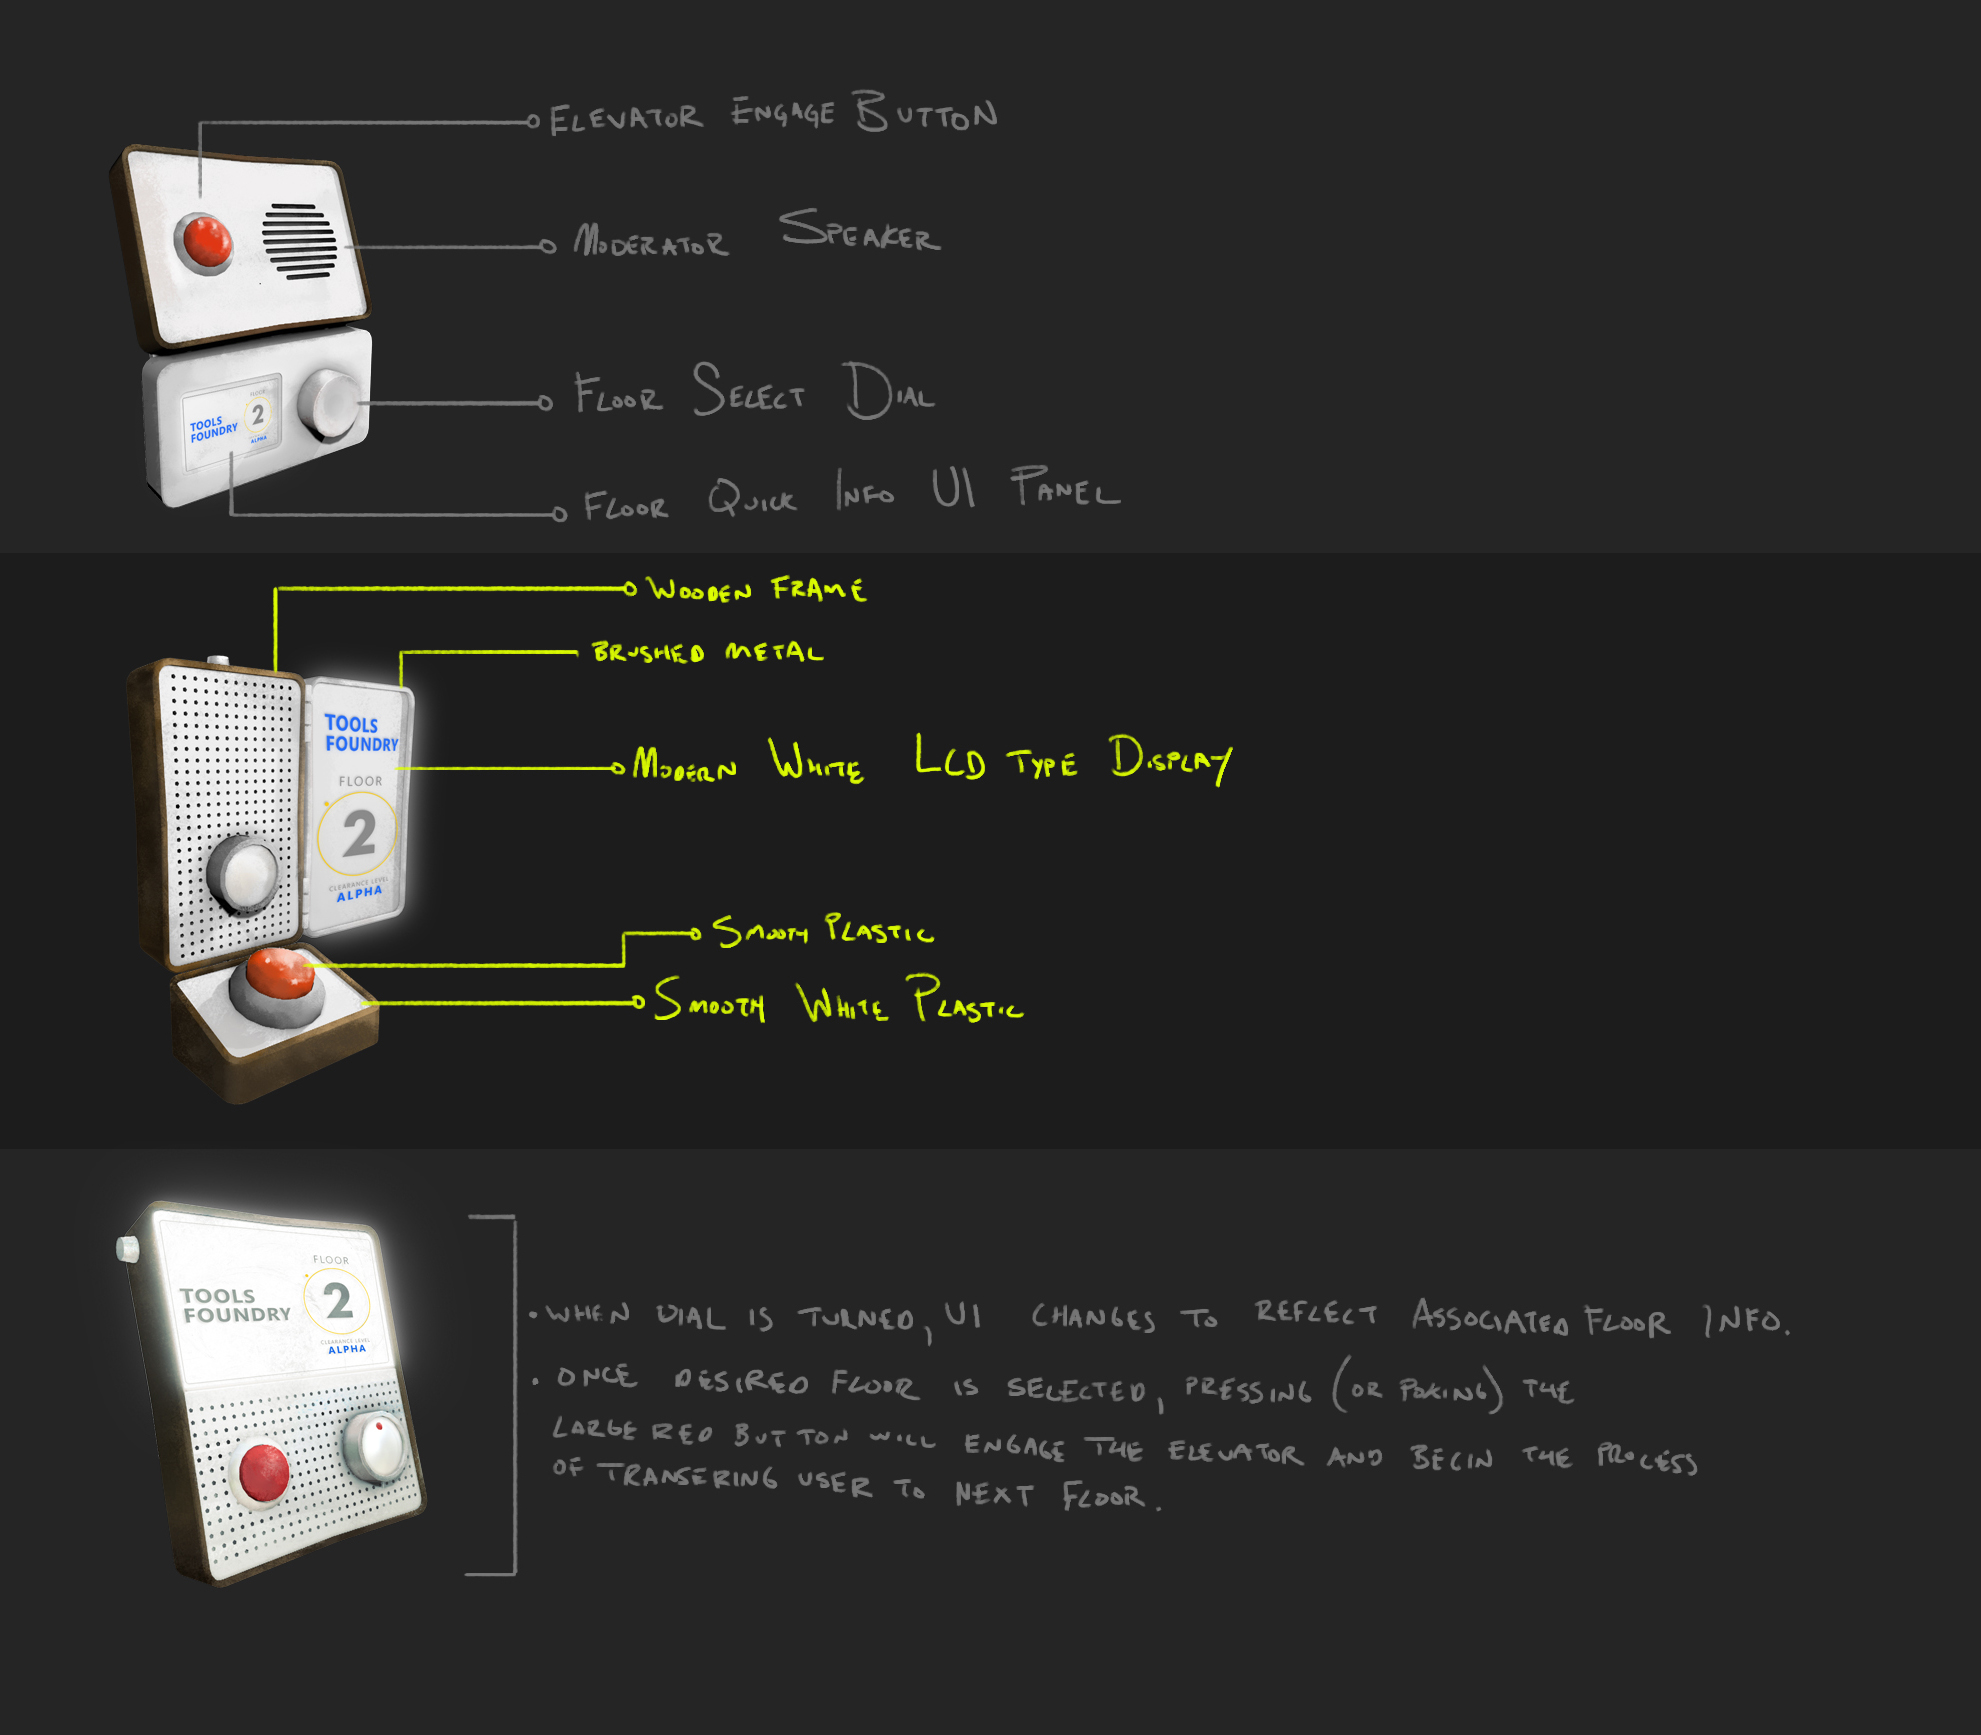 ELEVATOR ENGAGE BUTTON
MODERATOR SPEAKER
FLOOR SELECT DIAL
FLOOR
2
TOOLS
FOUNDRY
ALPHA
FLOOR QUICK INFO UI PANEL
WOODEN FRAME
BRUSHED METAL
TOOLS
FOUNDRY
MODERN WHITE LCD TYPE DISPLAY
FLOOR
2
CLEARANCE LEVEL
ALPHA
SMOOTH PLASTIC
SMOOTH WHITE PLASTIC
FLOOR
TOOLS
FOUNDRY
2
CLEARANCE LEVEL
ALPHA
• WHEN DIAL IS TURNED, UI CHANGES TO REFLECT ASSOCIATED FLOOR INFO.
• ONCE DESIRED FLOOR IS SELECTED, PRESSING (OR POKING) THE
LARGE RED BUTTON WILL ENGAGE THE ELEVATOR AND BEGIN THE PROCESS
OF TRANSERING USER TO NEXT FLOOR.